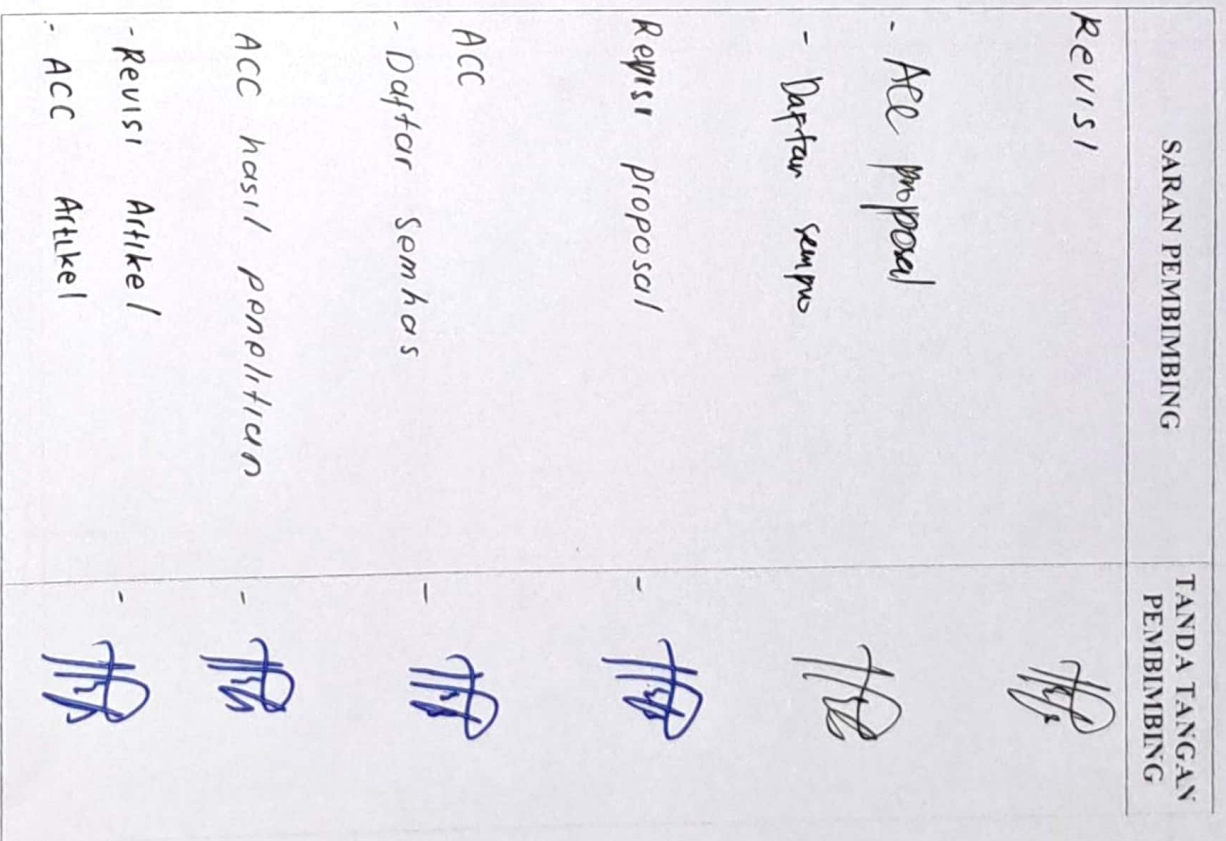 SARAN PEMBIMBING
TANDA TANGAN
PEMBIMBING
Revisi
- ACC proposal
- Daftar sempro
Repisi proposal
-
ACC
- Daftar semhas
-
ACC hasil penelitian
-
- Revisi Artikel
-
- ACC Artikel